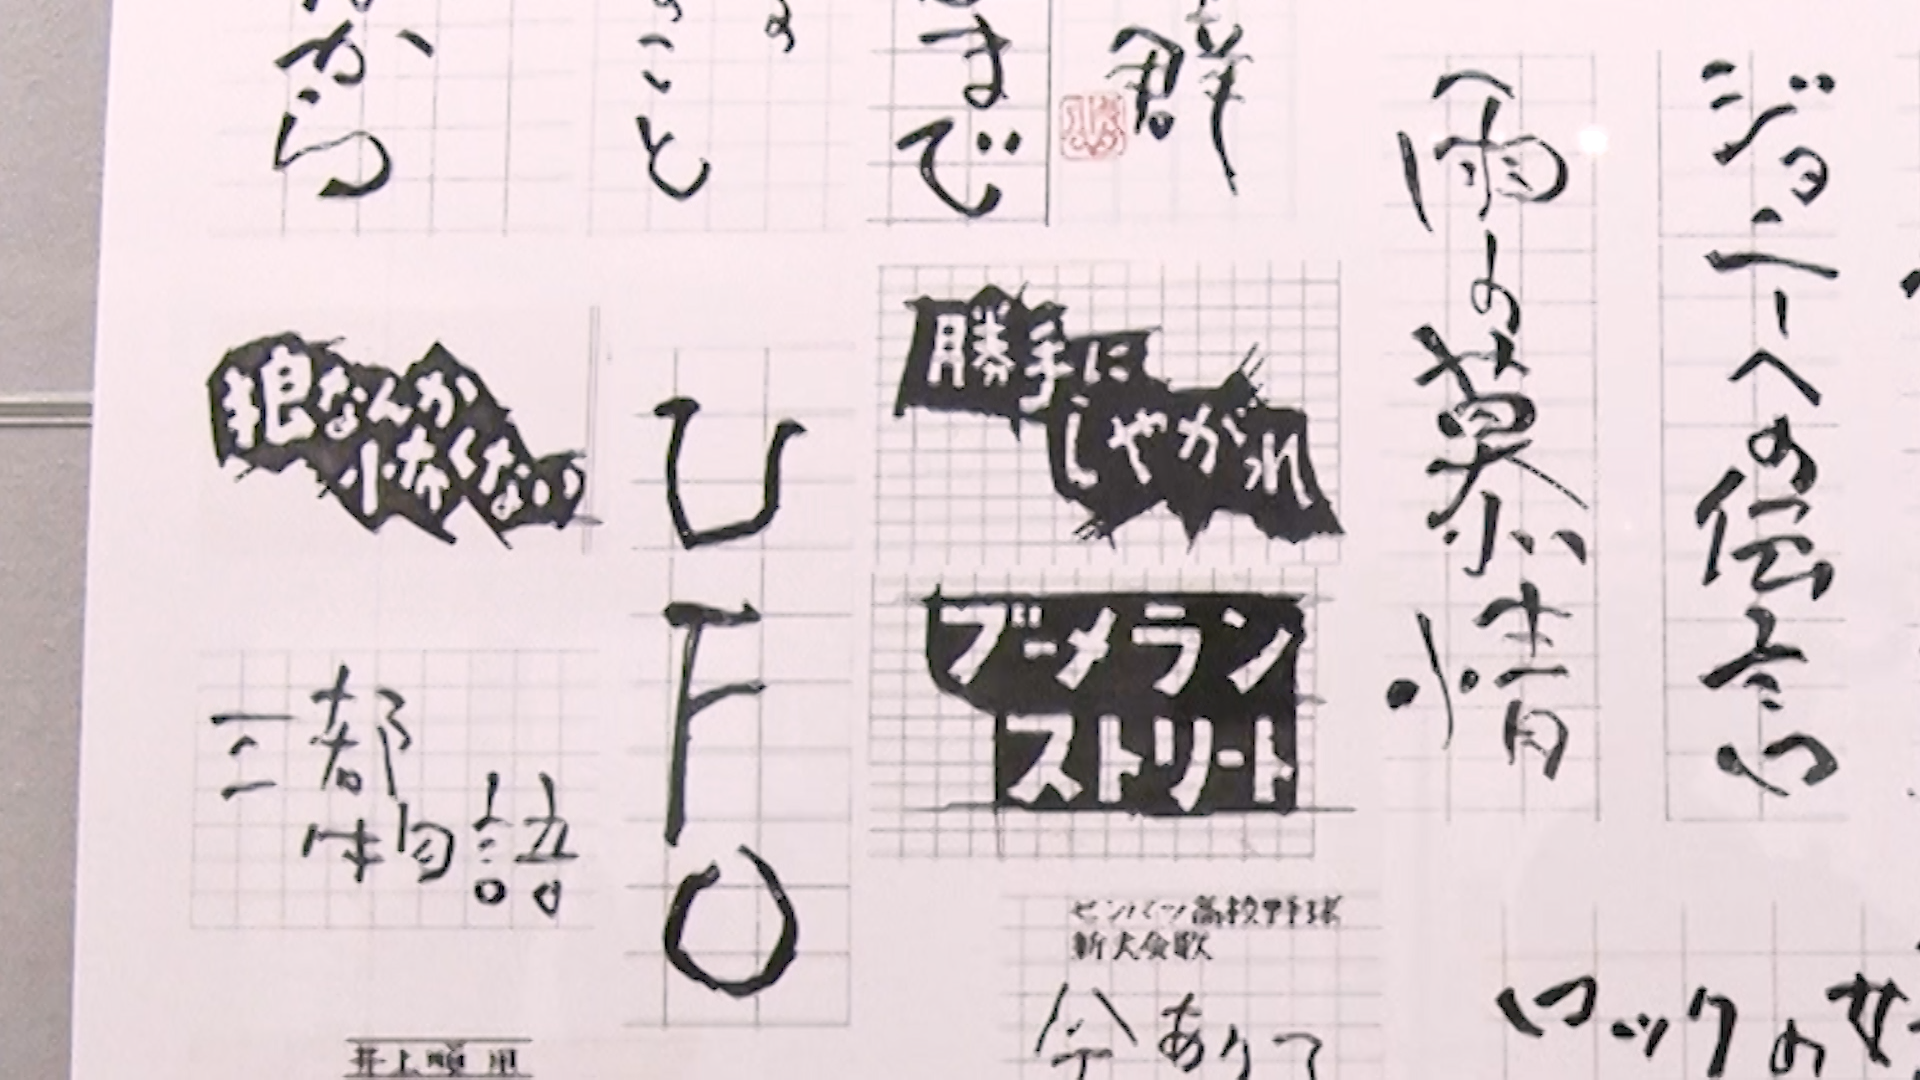 から
こと
の
まで
群
雨の慕情
ジョニーへの伝言
狼なんか
怖くない
UFO
勝手に
しやがれ
ブーメラン
ストリート
三都
物語
センバツ高校野球
新大会歌
今ありて
ロックの
井上順用